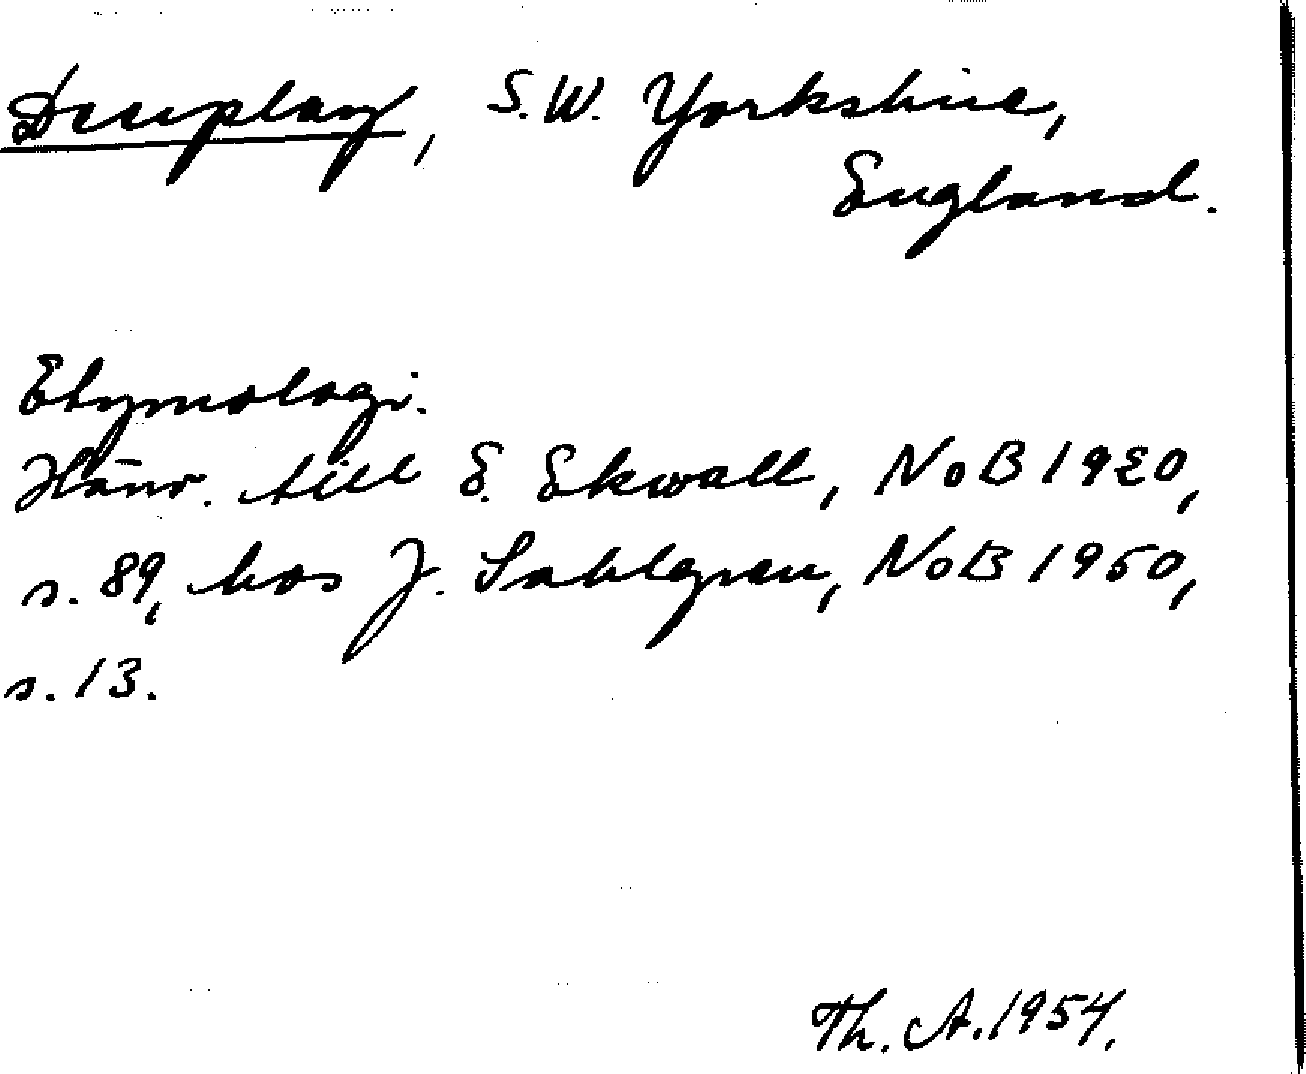 Deepslay, S.W. Yorkshire,
England.
Etymologi.
Hänv. till E. Ekwall, NoB 1920,
s. 89, hos J. Sahlgren, NoB 1950,
s. 13.
Th. A. 1954.